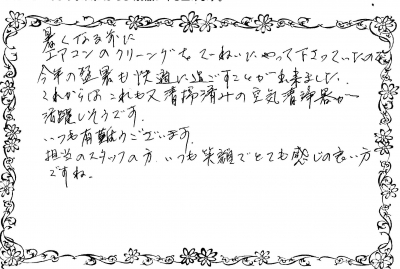 暑くなる前に
エアコンのクリーニングをてーねいにやって下さっていたので
今年の猛暑も快適に過ごすことが出来ました。
これからは これも又 清掃済みの空気清浄器が
活躍しそうです。
いつも有難うございます。
担当のスタッフの方、いつも笑顔でとても感じの良い方
ですね。